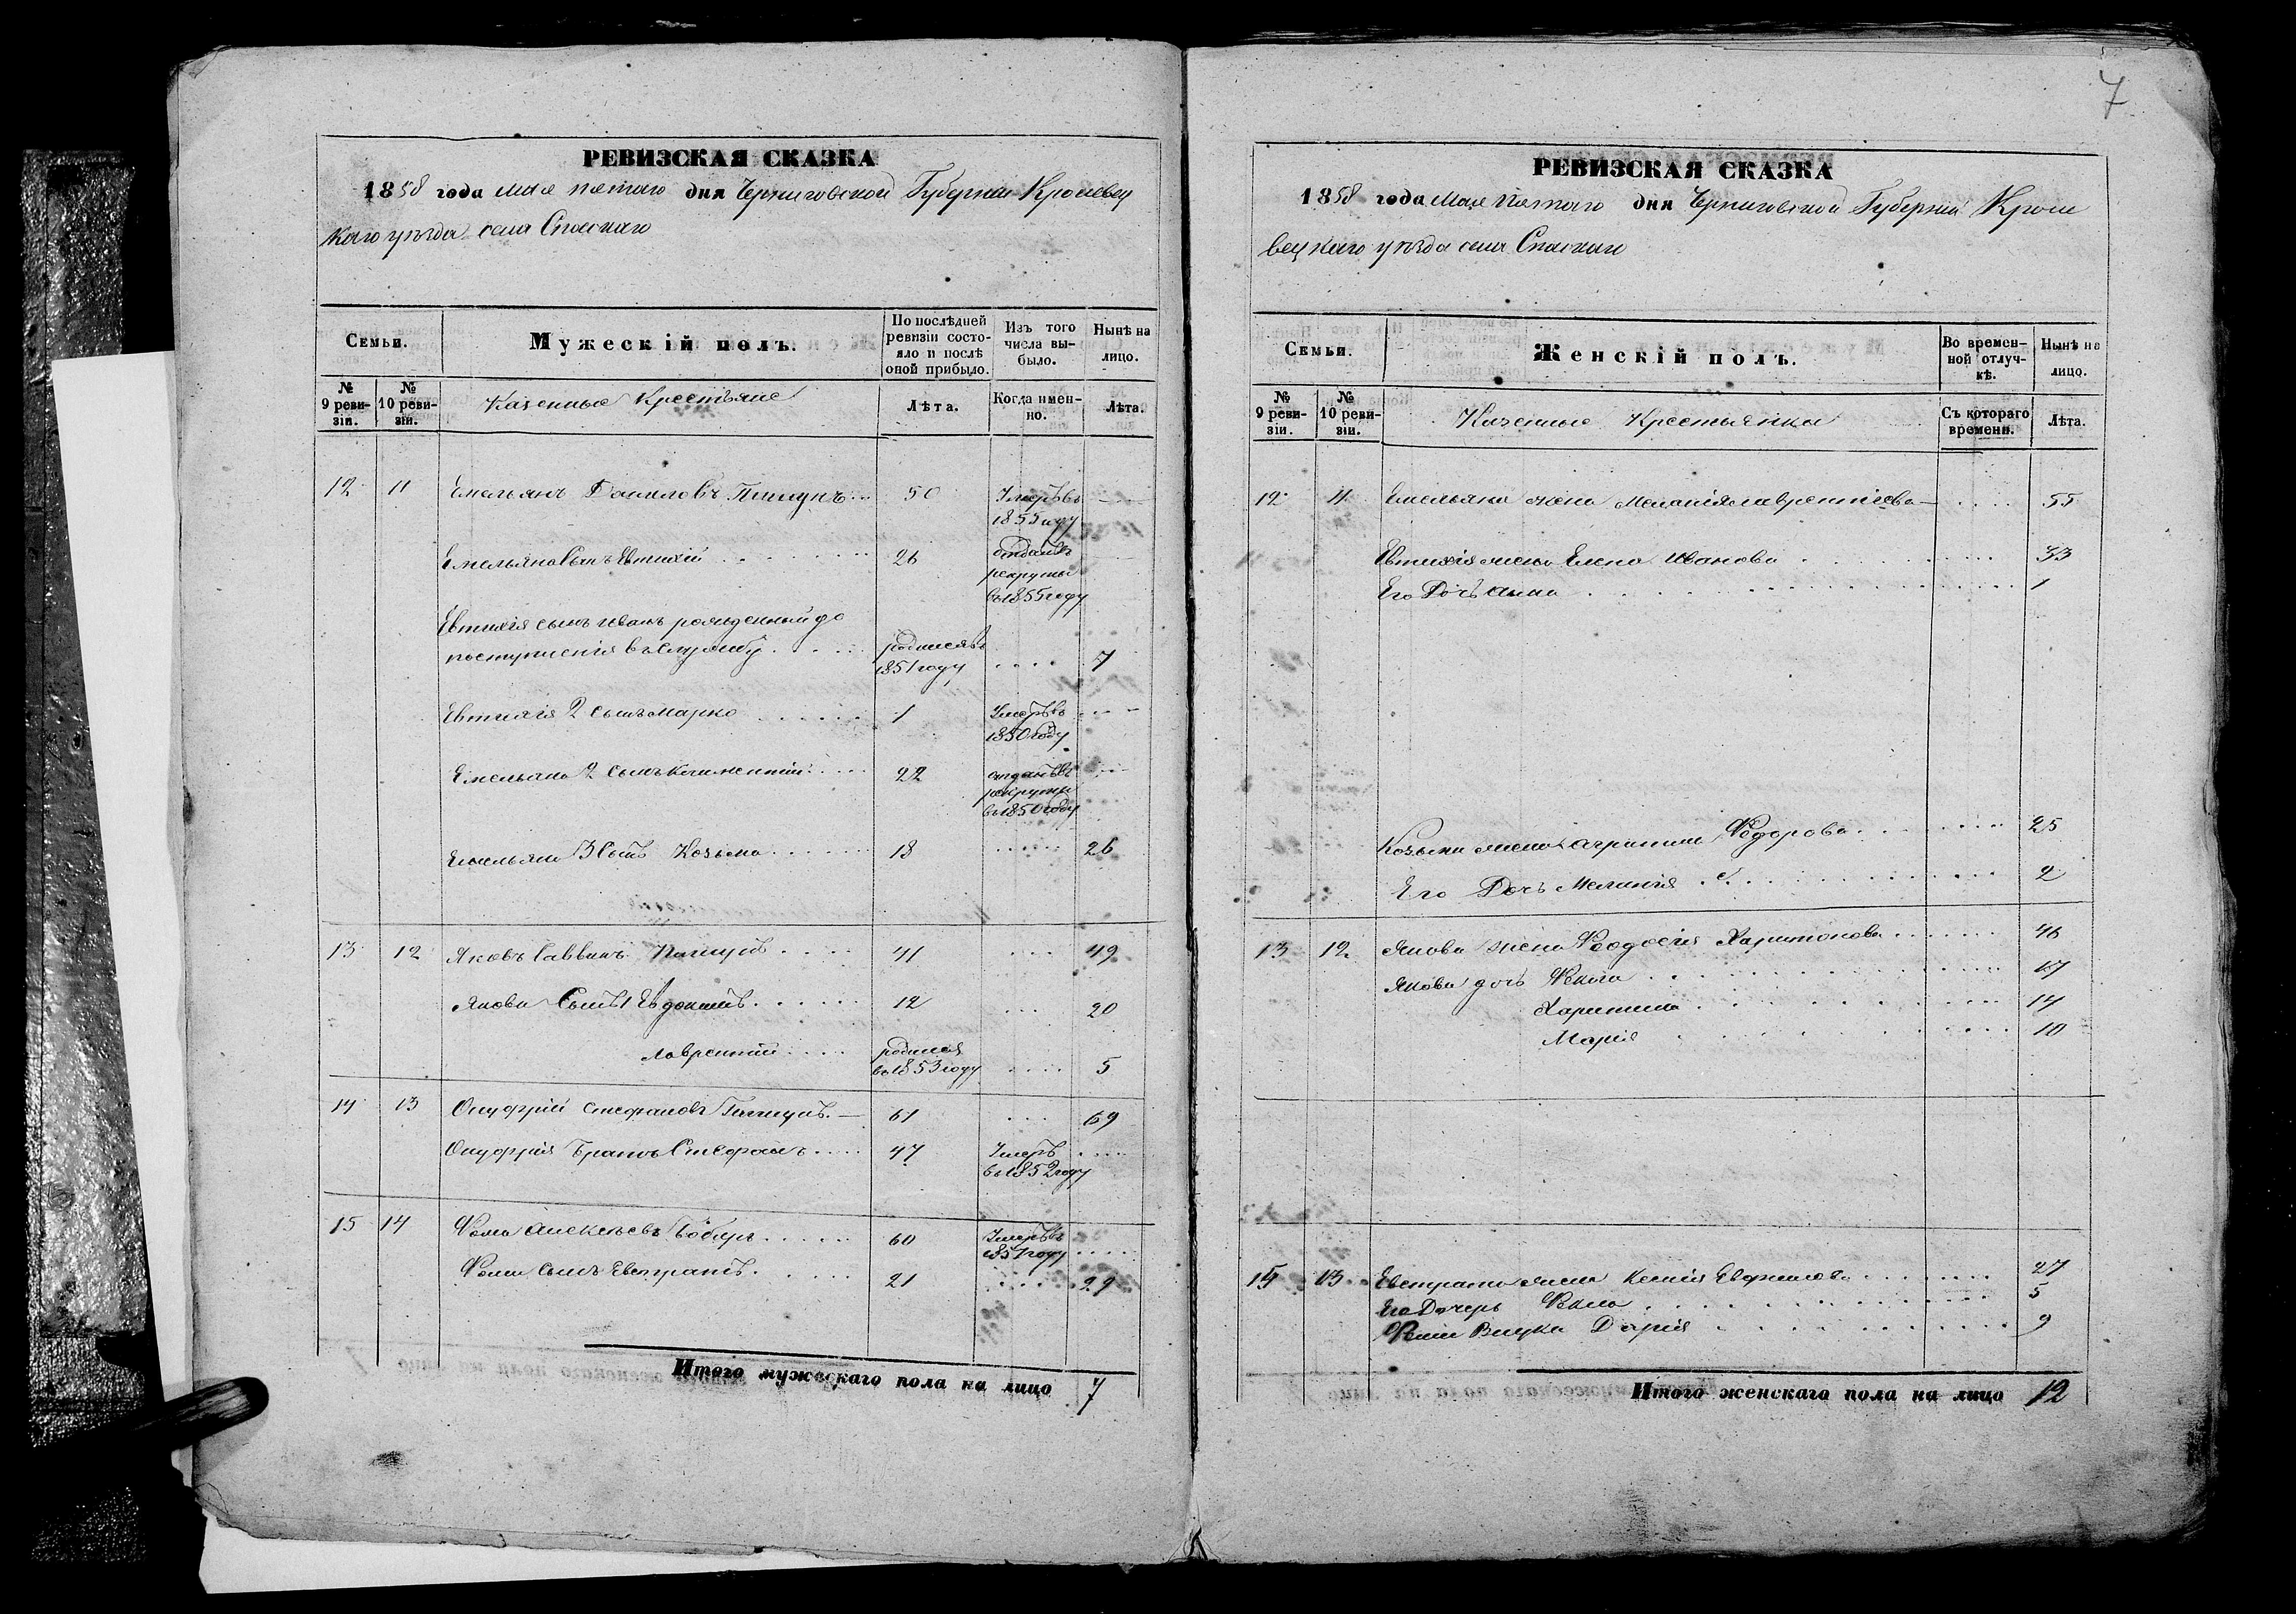 7
РЕВИЗСКАЯ СКАЗКА
1858 года мая пятаго дня Черниговской Губернии Кролевец
каго уѣзда села Спаскаго
Семьи.
Мужескій полъ.
По послѣдней ревизіи состояло и послѣ оной прибыло.
Изъ того числа выбыло.
Нынѣ на лицо.
№ 9 ревизіи.
№ 10 ревизіи.
Казенные Крестьяне
Лѣта.
Когда именно.
Лѣта.
12 11 Емельянъ Даниловъ 50 Умеръ въ — —
1855 году
Емельяна Сынъ Евтихій 26 отданъ въ
рекруты
въ 1855 году
Евтихія сынъ Иванъ рожденный до
поступленія въ службу родился въ
1851 году 7
Евтихія 2 сынъ Марко 1 Умеръ въ
1850 году
Емельяна 2 сынъ Климентій 22 отданъ въ
рекруты
въ 1850 году
Емельяна 3 Сынъ Козьма 18 26
13 12 Яковъ Саввинъ 41 49
Якова Сынъ 1 Евдокимъ 12 20
Лаврентій родился
въ 1853 году 5
14 13 Онуфрій Стефановъ 61 69
Онуфрія Братъ 47 Умеръ
въ 1852 году
15 14 Фома Алексѣевъ Бобырь 60 Умеръ въ
1857 году
Фомы Сынъ Евстратъ 21 29
Итого мужескаго пола на лицо 7
РЕВИЗСКАЯ СКАЗКА
1858 года Мая Пятаго дня Черниговской Губерніи Кроле
вецкаго уѣзда села Спаскаго
Семьи.
Женскій полъ.
Во временной отлучкѣ.
Нынѣ на лицо.
№ 9 ревизіи.
№ 10 ревизіи.
Казенные Крестьянки
Съ котораго времени.
Лѣта.
12 11 Емельяна жена Меланія Лаврентіева 55
Евтихія жена Елена Иванова 33
Его Дочь Анна 1
Козьмы жена Агрипина Федорова 25
Его Дочь Меланія 2
13 12 Якова жена Феодосія Харитонова 46
Якова дочь Фекла 17
Харитина 14
Марія 10
15 13 Евстрата жена Ксенія 27
Его Дочерь Фекла 5
Фомы Внука Дарія 9
Итого женскаго пола на лицо 12